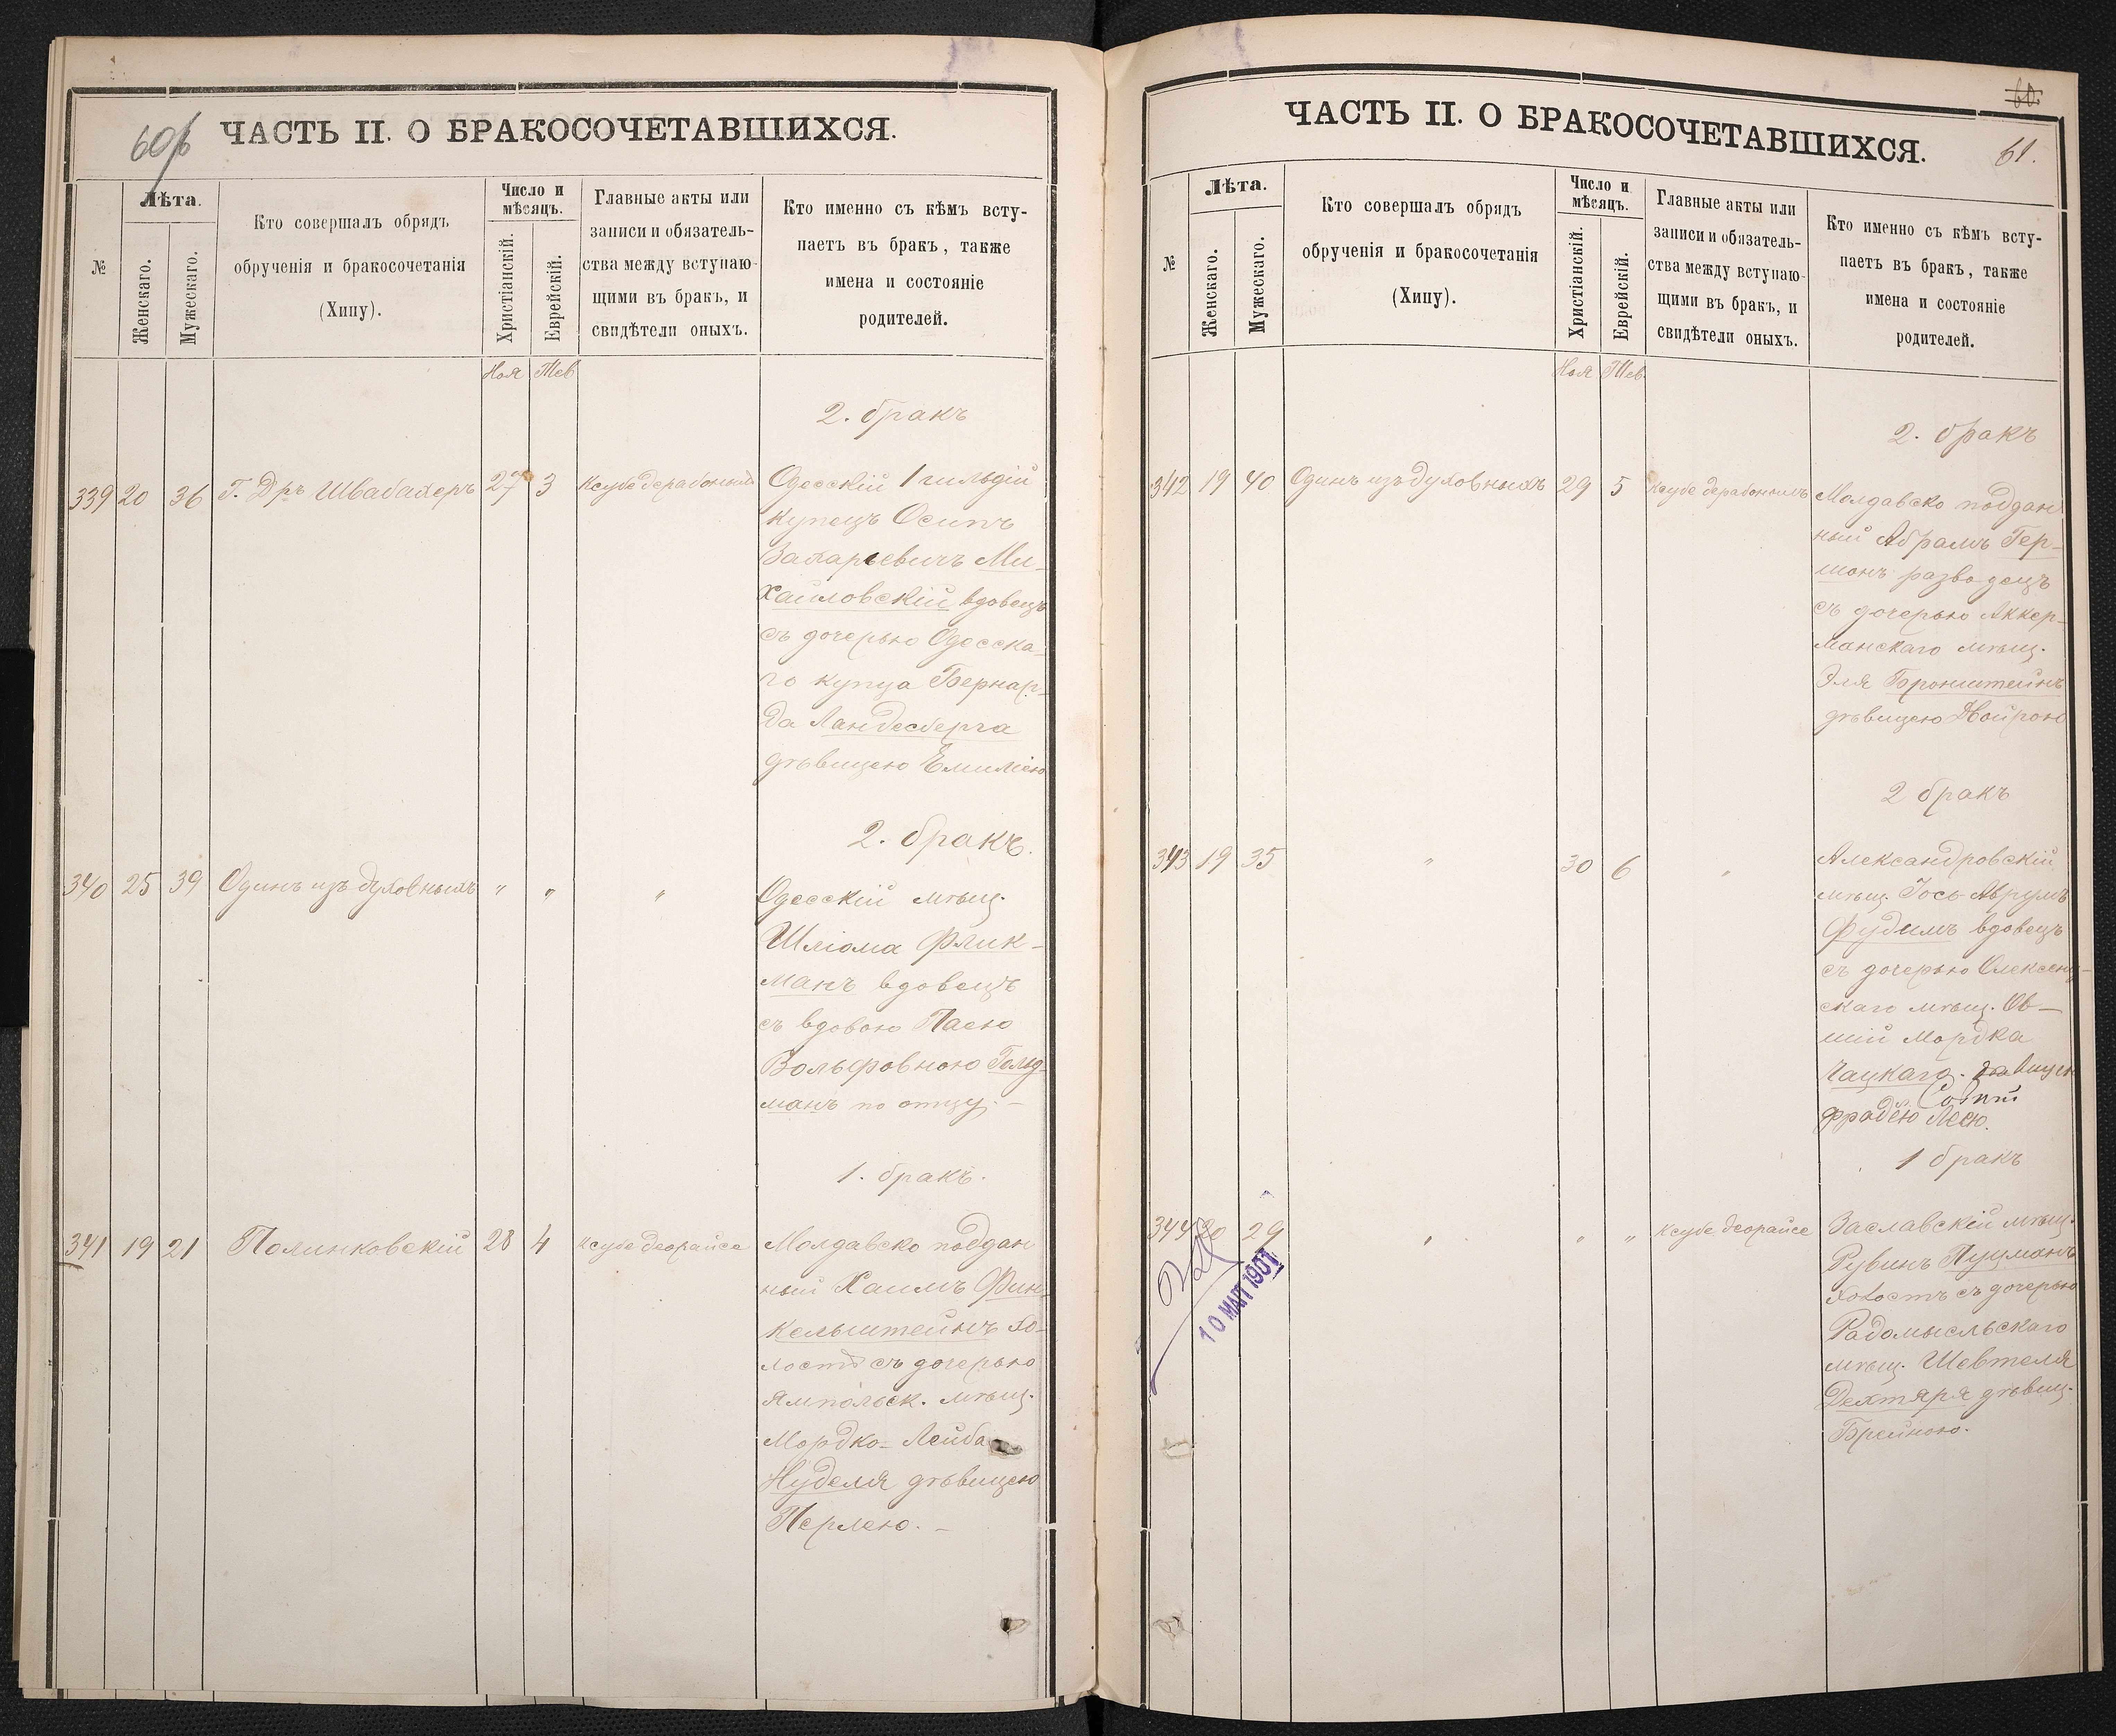 60 об
ЧАСТЬ II. О БРАКОСОЧЕТАВШИХСЯ.
№
Лѣта.
Женскаго.
Мужескаго.
Кто совершалъ обрядъ
обрученія и бракосочетанія
(Хипу).
Число и
мѣсяцъ.
Христіанскій.
Еврейскій.
Главные акты или
записи и обязатель-
ства между вступаю-
щими въ бракъ, и
свидѣтели оныхъ.
Кто именно съ кѣмъ всту-
паетъ въ бракъ, также
имена и состояніе
родителей.
Ноя Тев
2. бракъ
339 20 36 Г. Дръ Швабахеръ 27 3 Ксубе дерабонымъ Одесскій 1 гильдіи
купецъ Осипъ
Захарьевичъ Ми-
хайловскій вдовецъ
съ дочерью Одесска-
го купца Бернар-
да Ландесберга
дѣвицею Емиліею
2. бракъ.
340 25 39 Одинъ изъ духовныхъ " " " Одесскій мѣщ.
Шліома Флик-
манъ вдовецъ
съ вдовою Пасею
Вольфовною Гольд-
манъ по отцу. –
1. бракъ.
341 19 21 Полинковскій 28 4 Ксубе деорайсе Молдавско поддан
ный Хаимъ Фин-
кельштейнъ хо-
лостъ съ дочерью
Ямпольск. мѣщ.
Мордко-Лейба
Нуделя дѣвицею
Перлею. –
60.
61.
ЧАСТЬ II. О БРАКОСОЧЕТАВШИХСЯ.
№
Лѣта.
Женскаго.
Мужескаго.
Кто совершалъ обрядъ
обрученія и бракосочетанія
(Хипу).
Число и
мѣсяцъ.
Христіанскій.
Еврейскій.
Главные акты или
записи и обязатель-
ства между вступаю-
щими въ бракъ, и
свидѣтели оныхъ.
Кто именно съ кѣмъ всту-
паетъ въ бракъ, также
имена и состояніе
родителей.
Ноя Тев.
2. бракъ
342 19 40 Одинъ изъ духовныхъ 29 5 Ксубе дерабонымъ Молдавско поддан
ный Абрамъ Гер-
шонъ разводецъ
съ дочерью Аккер-
манскаго мѣщ.
Эля Бронштейнъ
дѣвицею Двойрою
2 бракъ
343 19 35 " 30 6 " Александровскій
мѣщ. Іось-Аврумъ
Фудимъ вдовецъ
съ дочерью
скаго мѣщ. Ов-
шій Мордка
Чацкаго. дѣвицею
фрадею Леею.
1 бракъ
344 20 29 " " " Ксубе деорайсе Заславскій мѣщ.
Рувинъ Пуцманъ
холостъ съ дочерью
Радомысльскаго
мѣщ. Шевтеля
Дехтяря дѣвиц.
Брейною.
10 МАП 1901